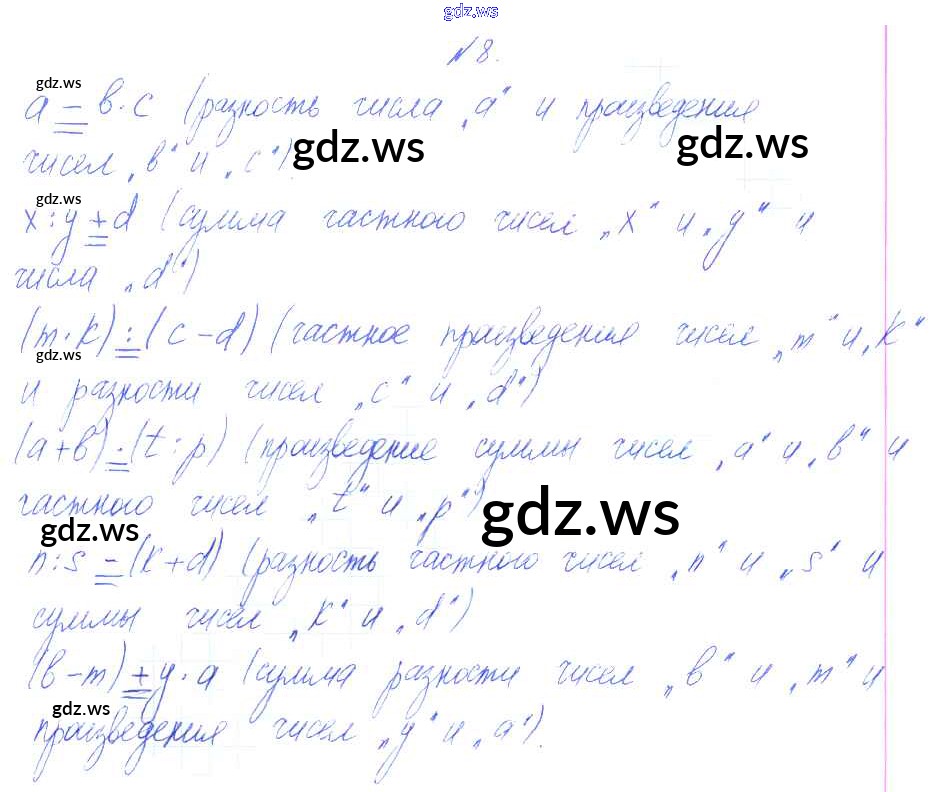 gdz.ws
№ 8.
gdz.ws
a − в · c (разность числа „a“ и произведения
чисел „в“ и „c“)
gdz.ws
gdz.ws
gdz.ws
x : y + d (сумма частного чисел „x“ и „y“ и
числа „d“)
(m · k) : (c − d) (частное произведения чисел „m“ и „k“
gdz.ws
и разности чисел „c“ и „d“)
(a + в) · (t : p) (произведение суммы чисел „a“ и „в“ и
частного чисел „t“ и „p“)
gdz.ws
gdz.ws
n : s − (k + d) (разность частного чисел „n“ и „s“ и
суммы чисел „k“ и „d“)
(в − m) + y · a (сумма разности чисел „в“ и „m“ и
gdz.ws
произведения чисел „y“ и „a“).